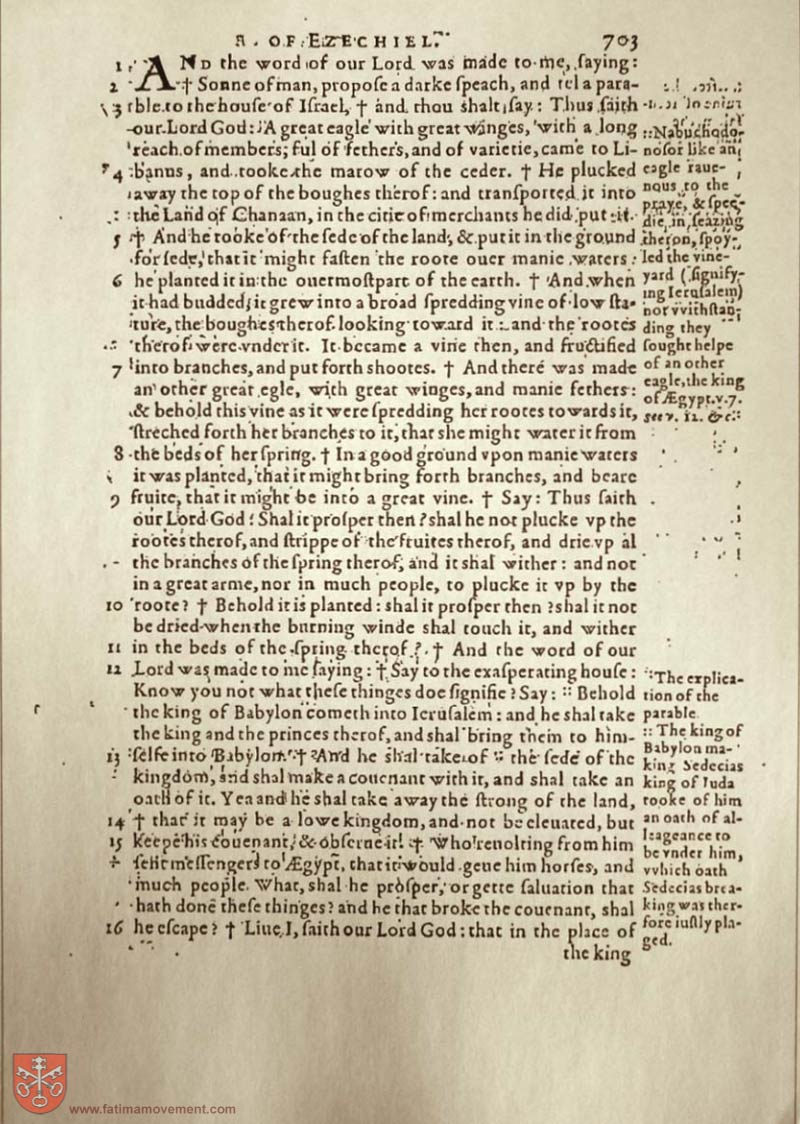 OF EZECHIEL. 703
1 AND the word of our Lord was made to me, saying:
2 † Sonne of man, propose a darke speach, and tel a para-
3 ble to the house of Israel, † and thou shalt say: Thus saith
our Lord God: A great eagle with great winges, with a long
reach of members, ful of fethers, and of varietie, came to Li-
4 banus, and tooke the marow of the ceder. † He plucked
away the top of the boughes therof: and transported it into
the Land of Chanaan, in the citie of merchants he did put it.
5 † And he tooke of the sede of the land, & put it in the ground
for sede, that it might fasten the roote ouer manie waters:
6 he planted it in the ouermost part of the earth. † And when
it had budded, it grew into a broad spredding vine of low sta-
ture, the boughes therof looking toward it: and the rootes
therof were vnder it. It became a vine then, and fructified
7 into branches, and put forth shootes. † And there was made
an other great egle, with great winges, and manie fethers:
& behold this vine as it were spredding her rootes towards it,
streched forth her branches to it, that she might water it from
8 the beds of her spring. † In a good ground vpon manie waters
it was planted, that it might bring forth branches, and beare
9 fruite, that it might be into a great vine. † Say: Thus saith
our Lord God: Shal it prosper then? shal he not plucke vp the
rootes therof, and strippe of the fruites therof, and drie vp al
the branches of the spring therof, and it shal wither: and not
in a great arme, nor in much people, to plucke it vp by the
10 roote? † Behold it is planted: shal it prosper then? shal it not
be dried when the burning winde shal touch it, and wither
11 in the beds of the spring therof? † And the word of our
12 Lord was made to me saying: † Say to the exasperating house:
Know you not what these thinges doe signifie? Say: :: Behold
the king of Babylon cometh into Ierusalem: and he shal take
the king and the princes therof, and shal bring them to him-
13 selfe into Babylon. † And he shal take of :: the sede of the
kingdom, and shal make a couenant with it, and shal take an
oath of it. Yea and he shal take away the strong of the land,
14 † that it may be a lowe kingdom, and not be eleuated, but
15 keepe his couenant, & obserue it. † Who reuolting from him
sent messengers to Ægypt, that it would geue him horses, and
much people. What, shal he prosper, or gette saluation that
hath done these thinges? and he that broke the couenant, shal
16 he escape? † Liue I, saith our Lord God: that in the place of
the king
:: Nabuchodo-
nosor like an
eagle raue-
nous to the
praye, & spee-
die in seazing
theron, spoy-
led the vine-
yard (signify-
ing Ierusalem)
not vvithstan-
ding they
sought helpe
of an other
eagle, the king
of Ægypt. v. 7.
see v. 12. &c.
:: The explica-
tion of the
parable
:: The king of
Babylon ma-
king Sedecias
king of Iuda
tooke of him
an oath of al-
leageance to
be vnder him,
vvhich oath
Sedecias brea-
king was ther-
fore iustly pla-
ged.
www.fatimamovement.com